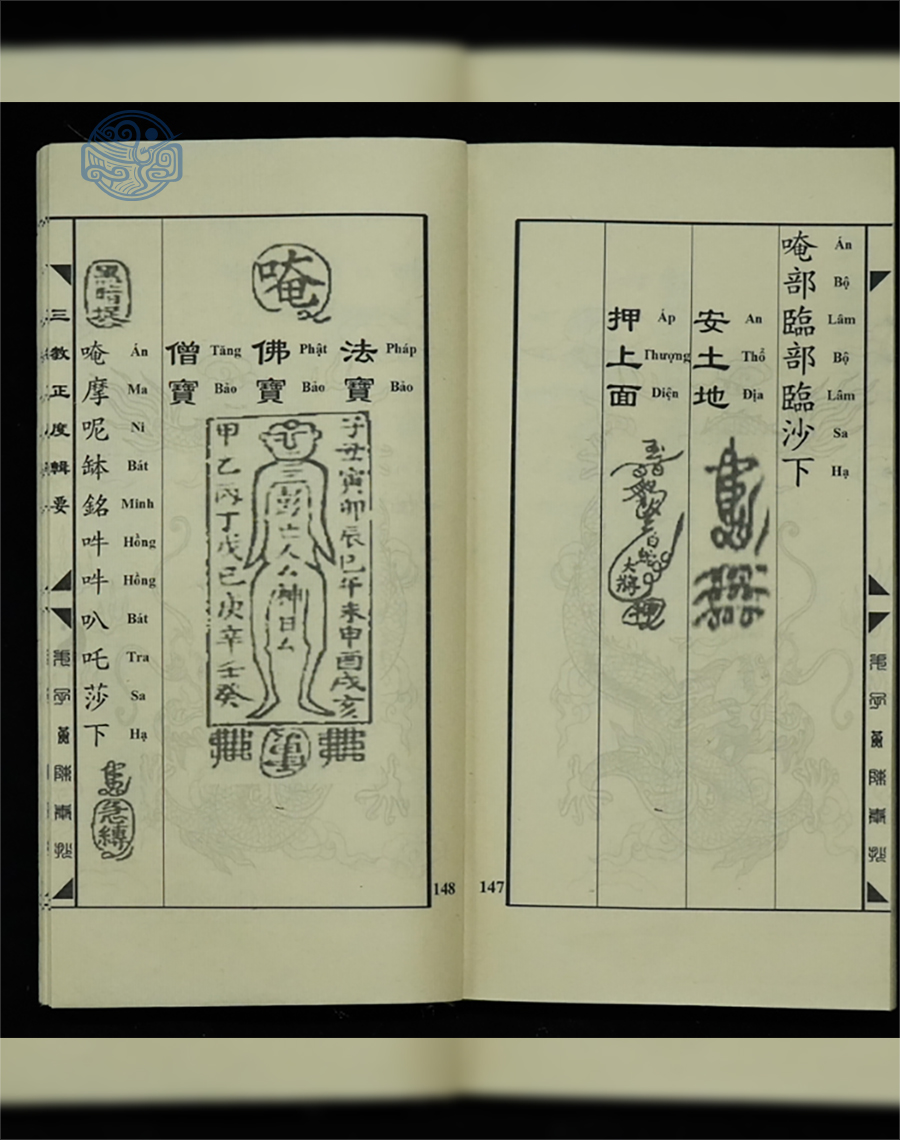 唵部臨部臨沙下
Án Bộ Lâm Bộ Lâm Sa Hạ
安土地
An Thổ Địa
押上面
Áp Thượng Diện
大將
147
唵
法寶
Pháp Bảo
佛寶
Phật Bảo
僧寶
Tăng Bảo
子丑寅卯辰巳午未申酉戌亥
三彭亡人厶神日厶
甲乙丙丁戊己庚辛壬癸
唵摩呢缽銘吽吽叭吒莎下
Án Ma Ni Bát Minh Hồng Hồng Bát Tra Sa Hạ
急縛
三教正度輯要
148